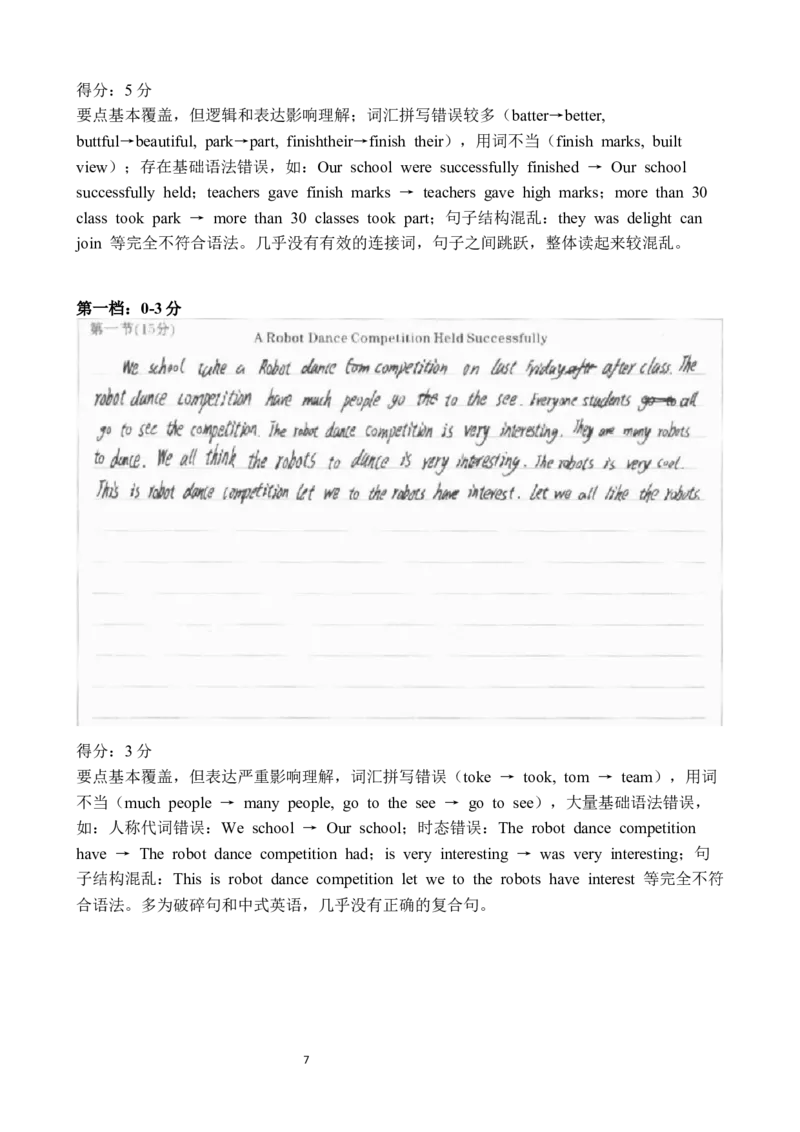 得分：5 分
要点基本覆盖，但逻辑和表达影响理解；词汇拼写错误较多（batter→better,
buttful→beautiful, park→part, finishtheir→finish their），用词不当（finish marks, built
view）；存在基础语法错误，如：Our school were successfully finished → Our school
successfully held；teachers gave finish marks → teachers gave high marks；more than 30
class took park → more than 30 classes took part；句子结构混乱：they was delight can
join 等完全不符合语法。几乎没有有效的连接词，句子之间跳跃，整体读起来较混乱。
第一档：0-3 分
第一节(15分)
A Robot Dance Competition Held Successfully
We school take a Robot dance tom competition on last Friday after class. The
robot dance competition have much people go the to the see. Everyone students all
go to see the competition. The robot dance competition is very interesting. They are many robots
to dance. We all think the robots to dance is very interesting. The robots is very cool.
This is robot dance competition let we to the robots have interest. Let we all like the robots.
得分：3 分
要点基本覆盖，但表达严重影响理解，词汇拼写错误（toke → took, tom → team），用词
不当（much people → many people, go to the see → go to see），大量基础语法错误，
如：人称代词错误：We school → Our school；时态错误：The robot dance competition
have → The robot dance competition had；is very interesting → was very interesting；句
子结构混乱：This is robot dance competition let we to the robots have interest 等完全不符
合语法。多为破碎句和中式英语，几乎没有正确的复合句。
7